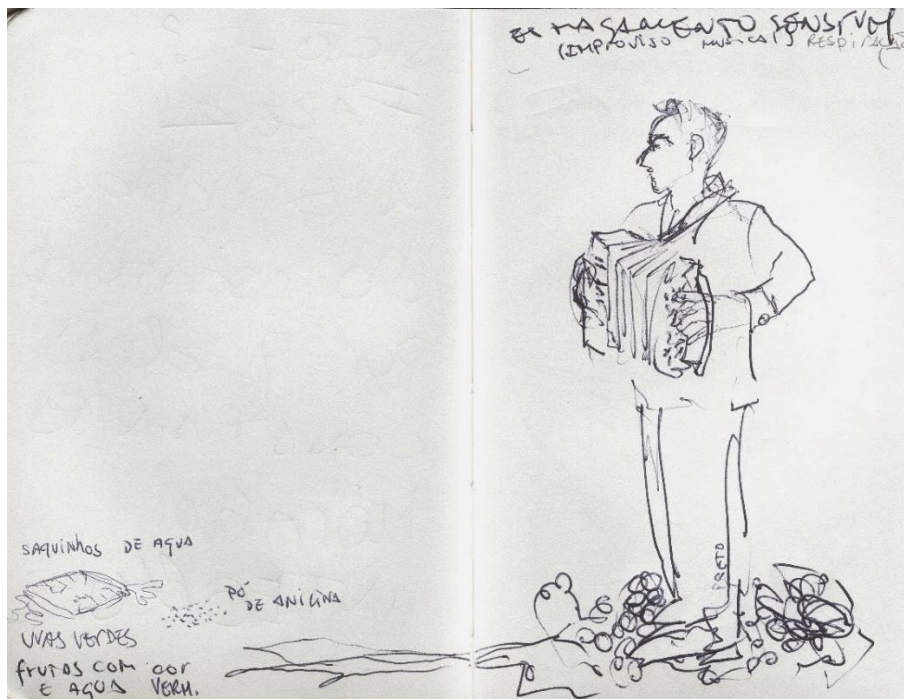 ESMAGAMENTO
(IMPROVISO MUSICAL) RESPIRAÇÃO
PRETO
SAQUINHOS DE AGUA
PÓ
DE ANILINA
UVAS VERDES
frutos COM cor
E AGUA VERM.